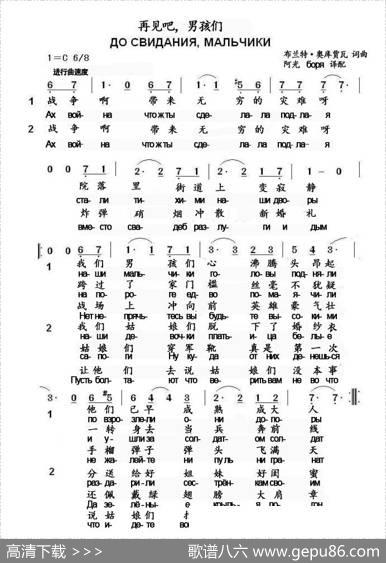 再见吧，男孩们
ДО СВИДАНИЯ, МАЛЬЧИКИ
1=C 6/8
布兰特·奥库贾瓦 词曲
进行曲速度
阿光 боря 译配
6 7 1· 1· 0 6 7 1· 1 #5 6 7 7· 7·
1 战争啊 带来无穷的灾难呀
Ах вой-на что ж ты сде- ла-ла под-ла-я
2 战争啊 带来无穷的灾难呀
Ах вой-на что ж ты сде- ла-ла под-ла-я
0 0 7 1 2· 2· 0 7 1 2· 2 1 7 1·-0
院落里 街道上变寂静
ста-ли ти-хи-ми на-ши дво-ры
炸弹硝烟冲散新婚礼
вме-сто сва-деб раз-лу- ги и дым
0 0 6 7 1· 1· 0 7 1 3· 3 4 5 3· 3·
1 我们男孩们心沸腾头昂起
на-ши маль-чи-ки го-ло-вы под-ня-ли
跨过了家门槛丝毫不犹疑
на по-ро-ге ед-во по-ма-я-чи-ли
战场上冲向前英雄豪气壮
Нет не пря-чь-тесь вы будь-те вы-со-ки-ми
2 我们姑娘们脱下了婚纱衣
на-ши де-воч-ки плать-и-ца бе-лы-е
姑娘们穿军靴真是第一次
са-по-ги Ну ку-да от них де-нешь-ся
让他们去说姑娘们没本事
Пусть бол-та- ют что ве-рить вам не во что
3· 0 6 #5
他们已早成熟成大人
по-взро-сле-ли о-ни до по-ры
一转身去当兵奔前线
и у-шли за сол-дат- ом сол-дат
手榴弹子弹头飞满天
не жа-лей-те ни пуль ни гра-нат
2 分送给好姐妹好闺蜜
раз-да-ри-ли сес-трён-кам сво-им
还佩戴绿翅膀大肩章
说姑娘们
что и-де-те во
高清下载 >>>
歌谱八六 www.gepu86.com